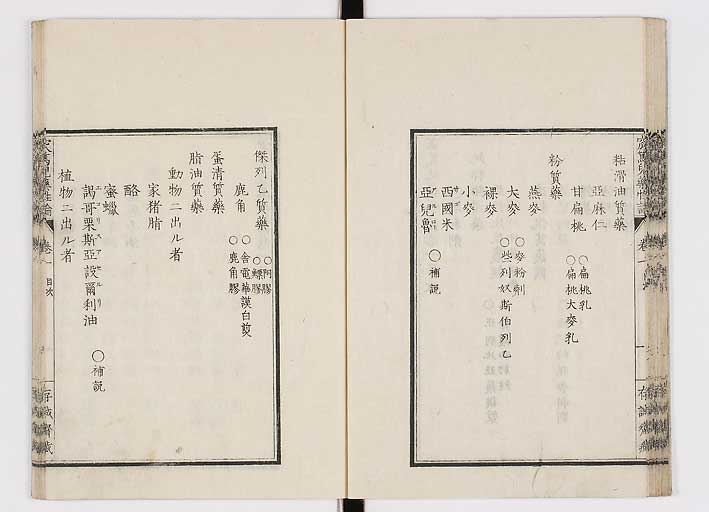 粘滑油質藥
亞麻仁
甘扁桃
○扁桃乳
○扁桃大麥乳
粉質藥
燕麥
大麥
○麥粉劑
○些列奴斯伯列乙
裸麥
小麥
西國米
亞兒魯
○補説
傑列乙質藥
鹿角
○阿膠
○鰾膠
○鹿角膠
蛋清質藥
脂油質藥
動物ニ出ル者
家猪脂
酪
蜜蠟
謁哥栗斯亞設爾利油
○補説
植物ニ出ル者
目次